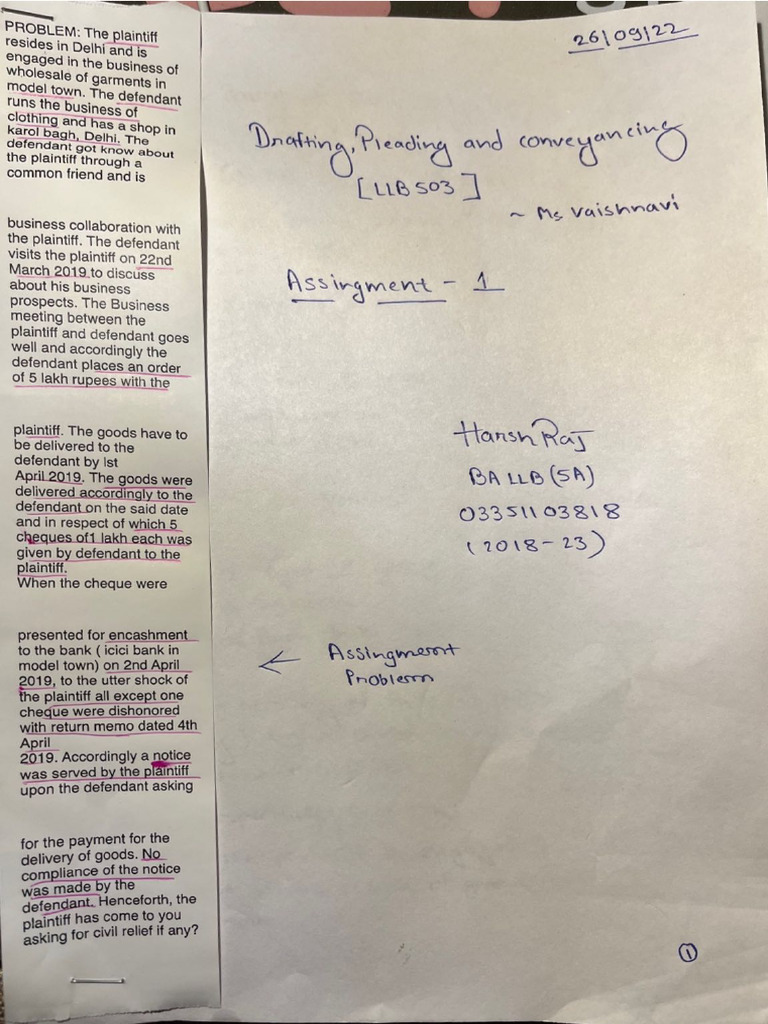 PROBLEM: The plaintiff
resides in Delhi and is
engaged in the business of
wholesale of garments in
model town. The defendant
runs the business of
clothing and has a shop in
karol bagh, Delhi. The
defendant got know about
the plaintiff through a
common friend and is
business collaboration with
the plaintiff. The defendant
visits the plaintiff on 22nd
March 2019 to discuss
about his business
prospects. The Business
meeting between the
plaintiff and defendant goes
well and accordingly the
defendant places an order
of 5 lakh rupees with the
plaintiff. The goods have to
be delivered to the
defendant by Ist
April 2019. The goods were
delivered accordingly to the
defendant on the said date
and in respect of which 5
cheques of1 lakh each was
given by defendant to the
plaintiff.
When the cheque were
presented for encashment
to the bank ( icici bank in
model town) on 2nd April
2019, to the utter shock of
the plaintiff all except one
cheque were dishonored
with return memo dated 4th
April
2019. Accordingly a notice
was served by the plaintiff
upon the defendant asking
for the payment for the
delivery of goods. No
compliance of the notice
was made by the
defendant. Henceforth, the
plaintiff has come to you
asking for civil relief if any?
26/09/22
Drafting, Pleading and conveyancing
[LLB 503]
~ Ms Vaishnavi
Assingment - 1
Harsh Raj
BA LLB (5A)
03351103818
(2018-23)
← Assingment
Problem
1